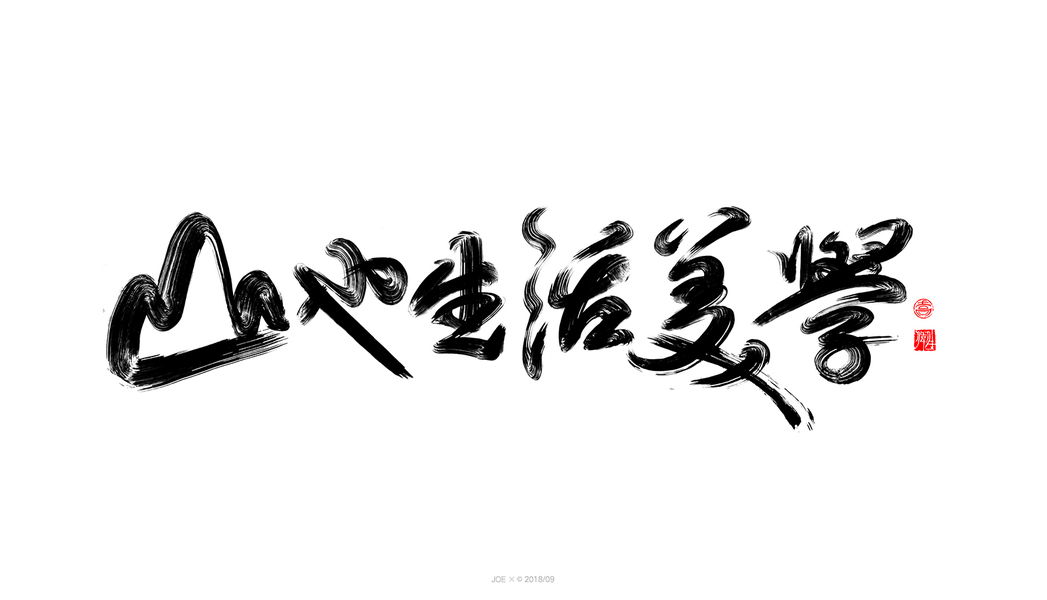 山也生活美學
JOE × © 2018/09